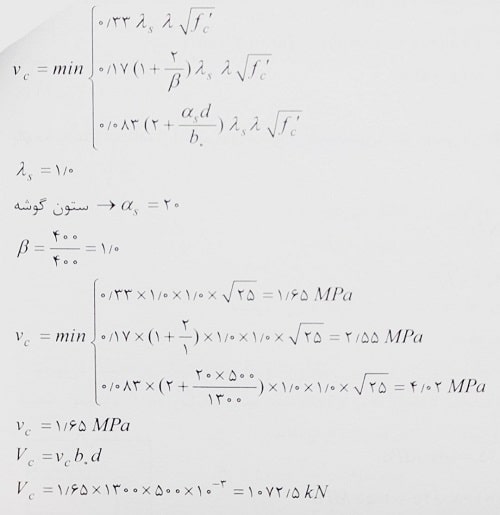 v_c = min { ۰/۳۳ λ_s λ √f'_c
۰/۱۷ (۱ + ۲/β) λ_s λ √f'_c
۰/۰۸۳ (۲ + α_s d / b_۰) λ_s λ √f'_c
λ_s = ۱/۰
ستون گوشه → α_s = ۲۰
β = ۴۰۰/۴۰۰ = ۱/۰
v_c = min { ۰/۳۳ × ۱/۰ × ۱/۰ × √۲۵ = ۱/۶۵ MPa
۰/۱۷ × (۱ + ۲/۱) × ۱/۰ × ۱/۰ × √۲۵ = ۲/۵۵ MPa
۰/۰۸۳ × (۲ + ۲۰ × ۵۰۰ / ۱۳۰۰) × ۱/۰ × ۱/۰ × √۲۵ = ۴/۰۲ MPa
v_c = ۱/۶۵ MPa
V_c = v_c b_۰ d
V_c = ۱/۶۵ × ۱۳۰۰ × ۵۰۰ × ۱۰^-۳ = ۱۰۷۲/۵ kN